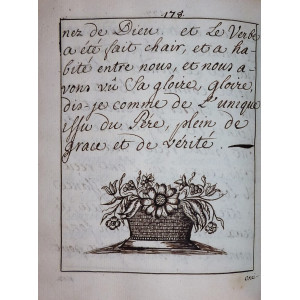 178.
nez de Dieu. et Le Verbe
a été fait chair, et a ha-
bité entre nous, et nous a-
vons vû Sa gloire, gloire,
dis-je comme de L'unique
issu du Père, plein de
grace et de vérité.